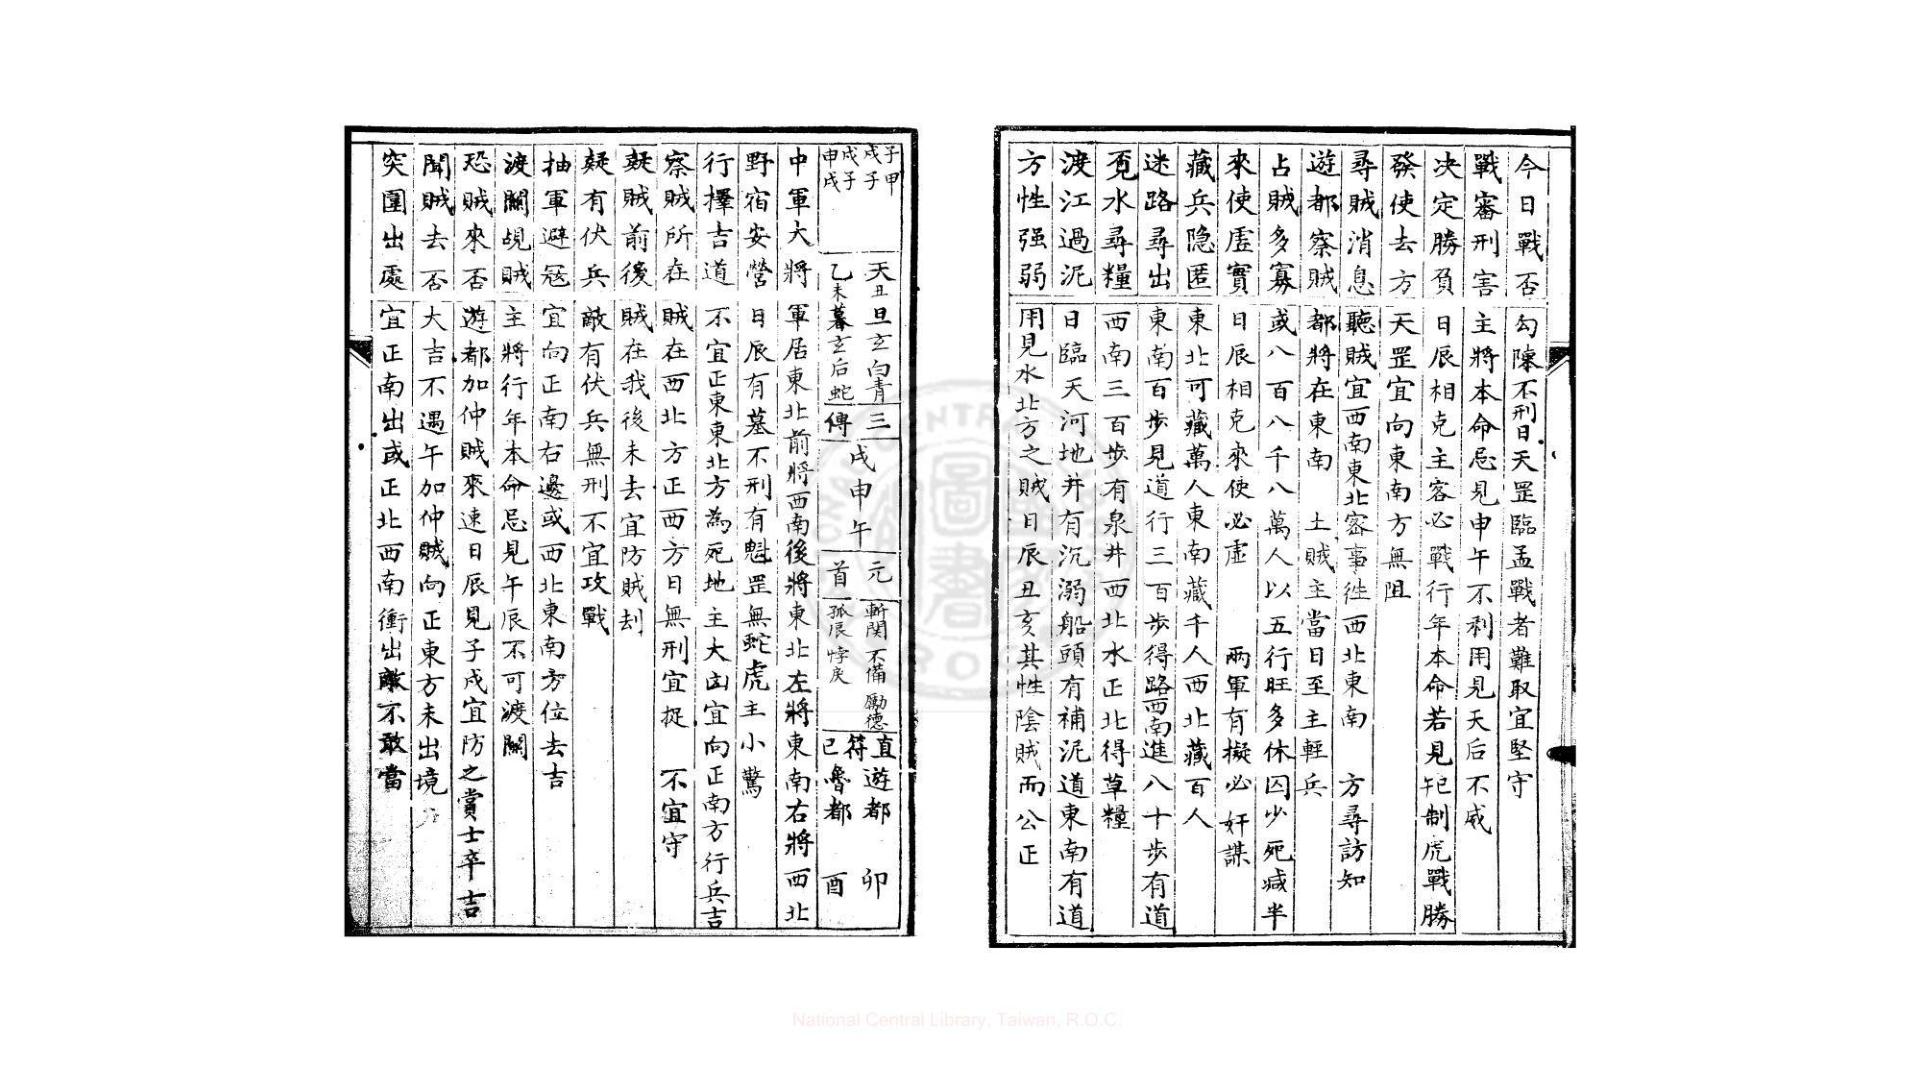 今日戰否 勾陳不刑日天罡臨孟戰者難取宜堅守
戰審刑害 主將本命忌見申午不利用見天后不威
决定勝負 日辰相克主客必戰行年本命若見 制虎戰勝
發使去方 天罡宜向東南方無阻
尋賊消息 聽賊宜西南東北密事徃西北東南 方尋訪知
遊都察賊 都將在東南 土賊主當日至主輕兵
占賊多寡 或八百八千八萬人以五行旺多休囚少死減半
來使虛實 日辰相克來使必虛 兩軍有擬必奸謀
藏兵隐匿 東北可藏萬人東南藏千人西北藏百人
迷路尋出 東南百步見道行三百步得路西南進八十步有道
覓水尋糧 西南三百步有泉井西北水正北得草糧
渡江過泥 日臨天河地井有沉溺船頭有補泥道東南有道
方性强弱 用見水北方之賊日辰丑亥其性陰賊而公正
子甲 戊子 戊子 申戌
天丑旦玄白青 三 戌申午 元 斬関不備勵德 直 遊都 卯
乙未暮玄后蛇 傳 首 孤辰悖戾 符 已 魯都 酉
中軍大將 軍居東北前將西南後將東北左將東南右將西北
野宿安營 日辰有墓不刑有魁罡無蛇虎主小驚
行擇吉道 不宜正東東北方為死地主大凶宜向正南方行兵吉
察賊所在 賊在西北方正西方日無刑宜捉 不宜守
疑賊前後 賊在我後未去宜防賊刦
疑有伏兵 敵有伏兵無刑不宜攻戰
抽軍避冦 宜向正南右邊或西北東南方位去吉
渡關覘賊 主將行年本命忌見午辰不可渡關
恐賊來否 遊都加仲賊來速日辰見子戌宜防之賞士卒吉
聞賊去否 大吉不遇午加仲賊向正東方未出境
突圍出處 宜正南出或正北西南衝出敵不敢當
National Central Library, Taiwan, R.O.C.